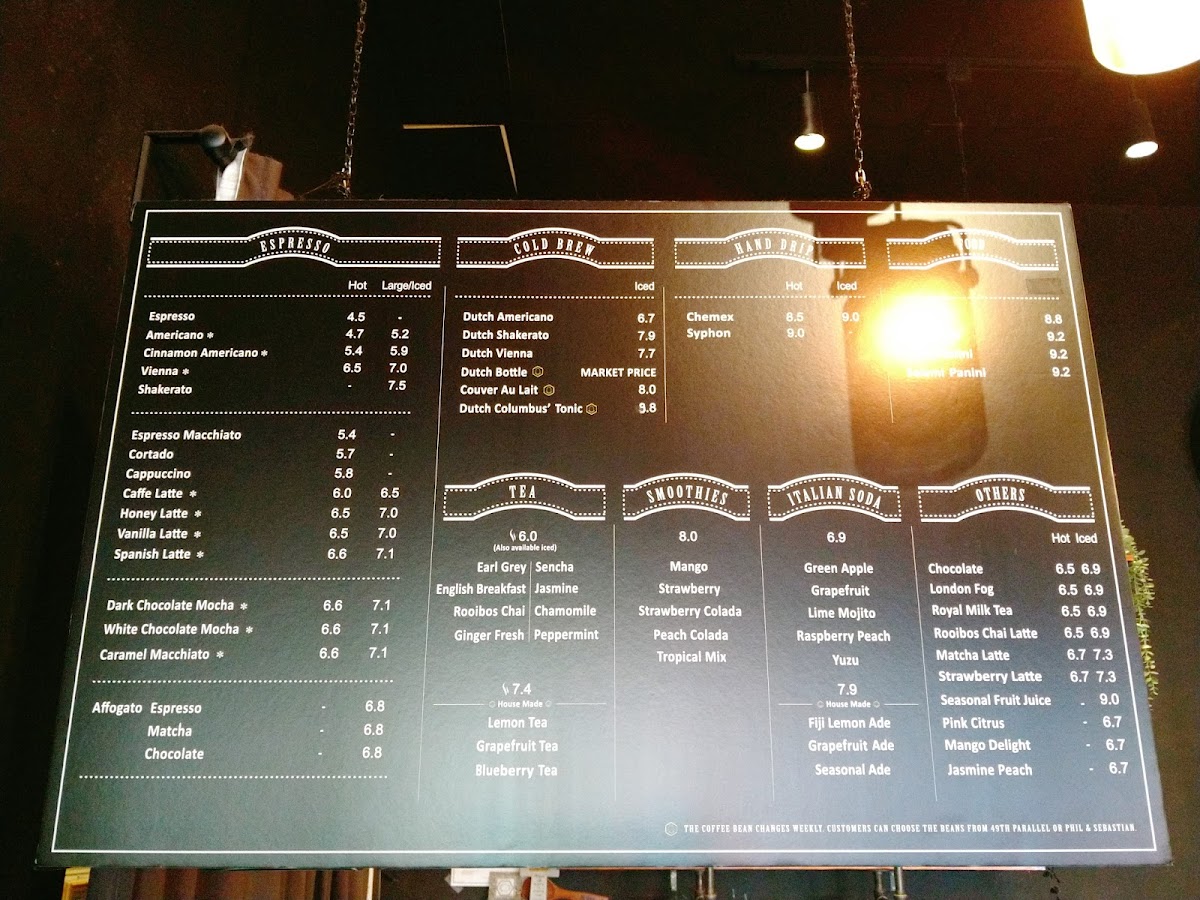 ESPRESSO
Hot Large/Iced
Espresso 4.5 -
Americano * 4.7 5.2
Cinnamon Americano * 5.4 5.9
Vienna * 6.5 7.0
Shakerato - 7.5
Espresso Macchiato 5.4 -
Cortado 5.7 -
Cappuccino 5.8 -
Caffe Latte * 6.0 6.5
Honey Latte * 6.5 7.0
Vanilla Latte * 6.5 7.0
Spanish Latte * 6.6 7.1
Dark Chocolate Mocha * 6.6 7.1
White Chocolate Mocha * 6.6 7.1
Caramel Macchiato * 6.6 7.1
Affogato Espresso - 6.8
Matcha - 6.8
Chocolate - 6.8
COLD BREW
Iced
Dutch Americano 6.7
Dutch Shakerato 7.9
Dutch Vienna 7.7
Dutch Bottle MARKET PRICE
Couver Au Lait 8.0
Dutch Columbus' Tonic 8.8
HAND DRIP
Hot Iced
Chemex 8.5 9.0
Syphon 9.0 -
8.8
9.2
9.2
Panini 9.2
TEA
6.0
(Also available iced)
Earl Grey Sencha
English Breakfast Jasmine
Rooibos Chai Chamomile
Ginger Fresh Peppermint
7.4
House Made
Lemon Tea
Grapefruit Tea
Blueberry Tea
SMOOTHIES
8.0
Mango
Strawberry
Strawberry Colada
Peach Colada
Tropical Mix
ITALIAN SODA
6.9
Green Apple
Grapefruit
Lime Mojito
Raspberry Peach
Yuzu
7.9
House Made
Fiji Lemon Ade
Grapefruit Ade
Seasonal Ade
OTHERS
Hot Iced
Chocolate 6.5 6.9
London Fog 6.5 6.9
Royal Milk Tea 6.5 6.9
Rooibos Chai Latte 6.5 6.9
Matcha Latte 6.7 7.3
Strawberry Latte 6.7 7.3
Seasonal Fruit Juice - 9.0
Pink Citrus - 6.7
Mango Delight - 6.7
Jasmine Peach - 6.7
THE COFFEE BEAN CHANGES WEEKLY. CUSTOMERS CAN CHOOSE THE BEANS FROM 49TH PARALLEL OR PHIL & SEBASTIAN.